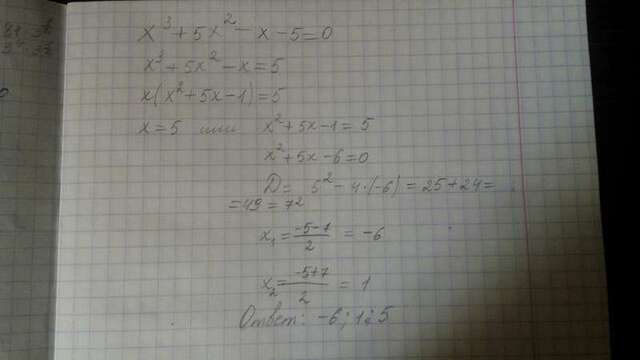 x³ + 5x² - x - 5 = 0
x³ + 5x² - x = 5
x(x² + 5x - 1) = 5
x = 5 или x² + 5x - 1 = 5
x² + 5x - 6 = 0
D = 5² - 4·(-6) = 25 + 24 =
= 49 = 7²
x₁ = (-5-7)/2 = -6
x₂ = (-5+7)/2 = 1
Ответ: -6; 1; 5